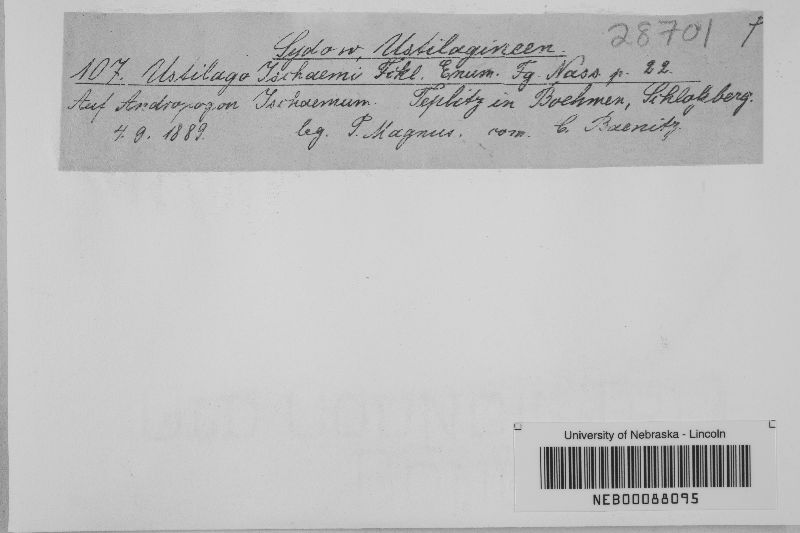 28701
Sydow, Ustilagineen.
107. Ustilago Ischaemi Fckl. Enum. Fg. Nass. p. 22.
Auf Andropogon Ischaemum. Teplitz in Boehmen, Schloßberg.
4. 9. 1889. leg. P. Magnus. com. C. Baenitz.
University of Nebraska - Lincoln
NEB00088095